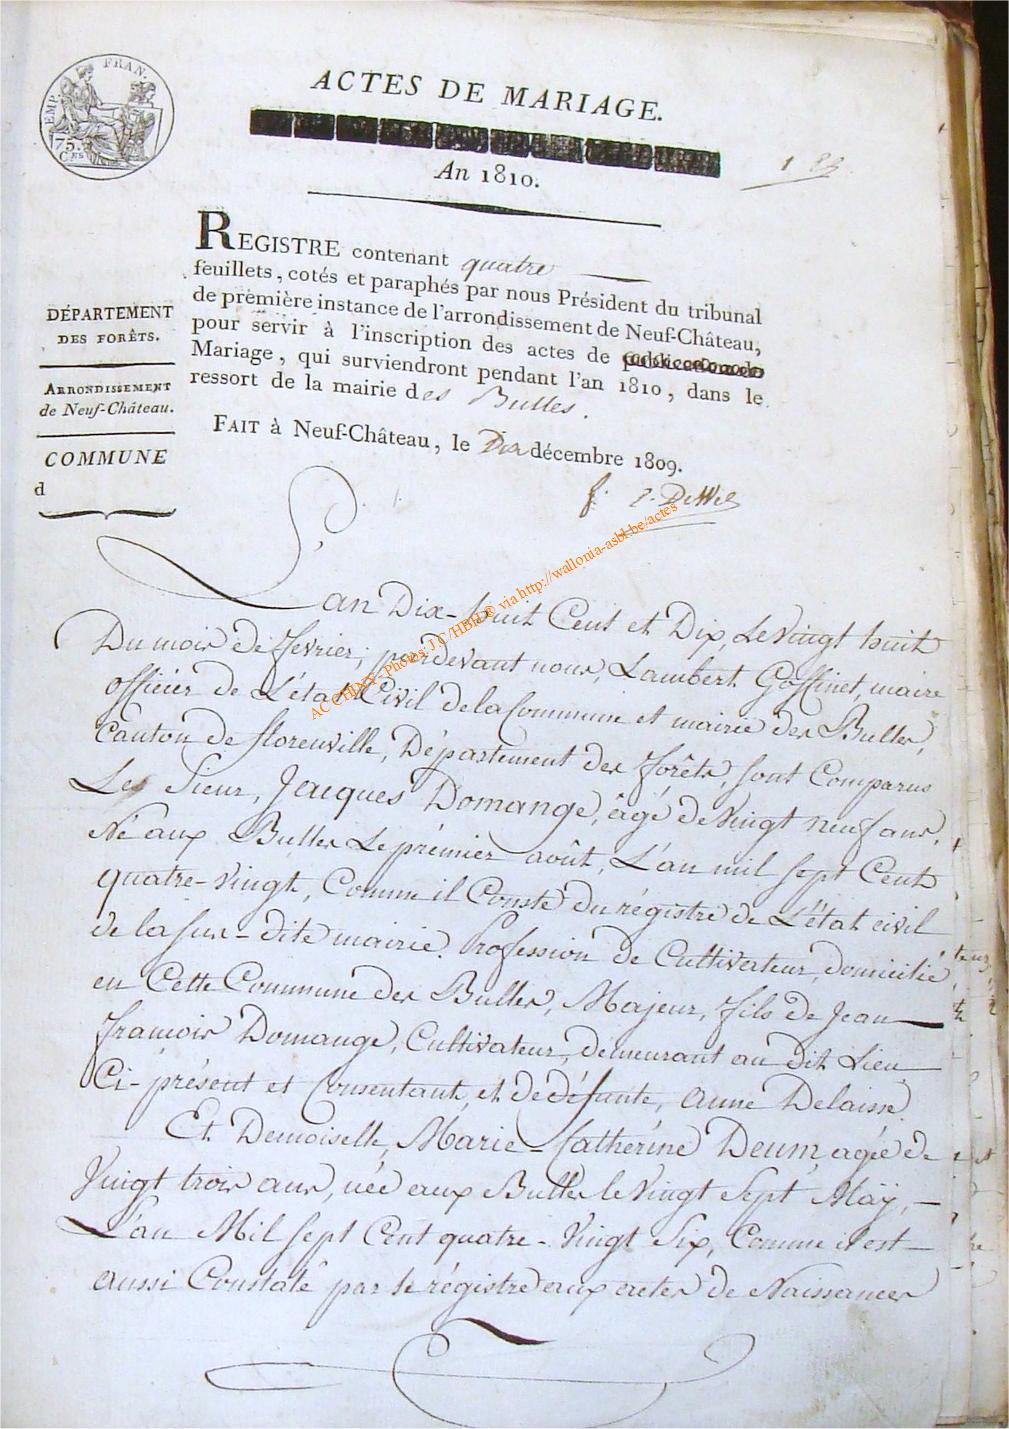 EMP. FRAN.
75.
C.ES
ACTES DE MARIAGE.
An 1810.
1
REGISTRE contenant quatre
feuillets, cotés et paraphés par nous Président du tribunal
de première instance de l'arrondissement de Neuf-Château,
pour servir à l'inscription des actes de
Mariage, qui surviendront pendant l'an 1810, dans le
ressort de la mairie des Bulles.
FAIT à Neuf-Château, le Dix décembre 1809.
DÉPARTEMENT
DES FORÊTS.
ARRONDISSEMENT
de Neuf-Château.
COMMUNE
d
ACCHINY - Photos: J C/HBH ® via http://wallonia-asbl.be/actes
L'an Dix-huit Cent et Dix, Le Vingt huit
Du mois de fevrier, pardevant nous, Lambert Goffinet, maire
officier de L'état Civil de la Commune et mairie des Bulles,
Canton de florenville, Département des forêts, sont Comparus
Les Sieur, Jacques Domange, âgé de Vingt neuf ans,
Né aux Bulles Le prémier août, L'an mil sept Cent
quatre-vingt, Comme il Conste du régistre de L'état civil
de la sus-dite mairie. Profession de Cultivateur, domicilié
en Cette Commune des Bulles, Majeur, fils de Jean
francois Domange, Cultivateur, demeurant au dit Lieu
Ci-présent et Consentant, et de défunte, Anne Delaisse.
Et Demoiselle, Marie-Cathérine Deum, agée de
Vingt trois ans, née aux Bulles le Vingt Sept Maÿ,
L'an Mil sept Cent quatre-Vingt Six, Comme il est
aussi Constaté par le régistre aux actes de Naissances